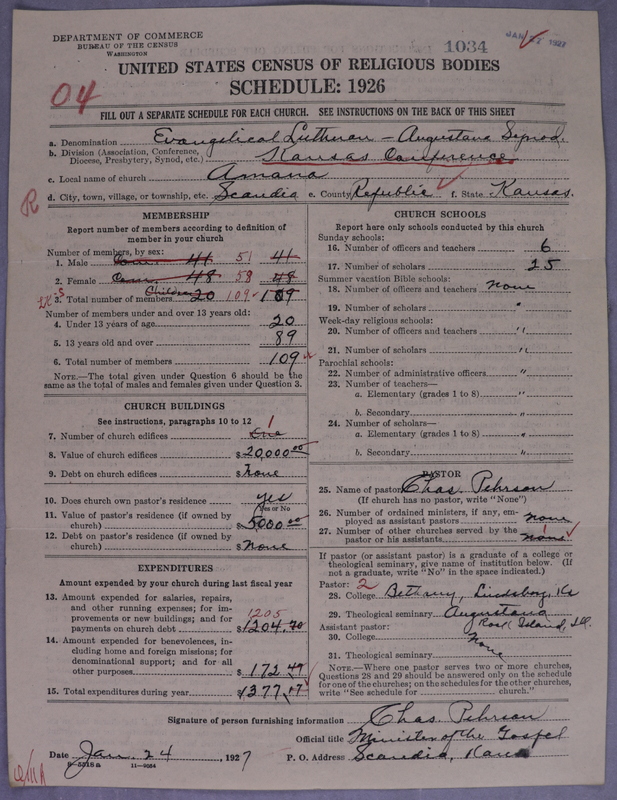 DEPARTMENT OF COMMERCE
BUREAU OF THE CENSUS
WASHINGTON
1034
JAN 27 1927
UNITED STATES CENSUS OF RELIGIOUS BODIES
SCHEDULE: 1926
04
FILL OUT A SEPARATE SCHEDULE FOR EACH CHURCH. SEE INSTRUCTIONS ON THE BACK OF THIS SHEET
a. Denomination Evangelical Lutheran – Augustana Synod.
b. Division (Association, Conference, Diocese, Presbytery, Synod, etc.) Kansas Conference
c. Local name of church Amana
d. City, town, village, or township, etc. Scandia e. County Republic f. State Kansas.
R
MEMBERSHIP
Report number of members according to definition of
member in your church
Number of members, by sex:
1. Male Com. 41 51 41
2. Female Com. 48 58 48
3. Total number of members Children 20 109 109
Number of members under and over 13 years old:
4. Under 13 years of age 20
5. 13 years old and over 89
6. Total number of members 109
NOTE.—The total given under Question 6 should be the
same as the total of males and females given under Question 3.
CHURCH BUILDINGS
See instructions, paragraphs 10 to 12
7. Number of church edifices One 1
8. Value of church edifices $20,000.00
9. Debt on church edifices $ None
10. Does church own pastor's residence yes
(Yes or No)
11. Value of pastor's residence (if owned by
church) $5000.00
12. Debt on pastor's residence (if owned by
church) $ None
EXPENDITURES
Amount expended by your church during last fiscal year
13. Amount expended for salaries, repairs,
and other running expenses; for im-
provements or new buildings; and for
1205
payments on church debt $1204.70
14. Amount expended for benevolences, in-
cluding home and foreign missions; for
denominational support; and for all
other purposes $172.47
15. Total expenditures during year $1377.17
CHURCH SCHOOLS
Report here only schools conducted by this church
Sunday schools:
16. Number of officers and teachers 6
17. Number of scholars 25
Summer vacation Bible schools:
18. Number of officers and teachers None
19. Number of scholars "
Week-day religious schools:
20. Number of officers and teachers "
21. Number of scholars "
Parochial schools:
22. Number of administrative officers "
23. Number of teachers—
a. Elementary (grades 1 to 8) "
b. Secondary "
24. Number of scholars—
a. Elementary (grades 1 to 8) "
b. Secondary "
PASTOR
25. Name of pastor Chas. Pehrson
(If church has no pastor, write "None")
26. Number of ordained ministers, if any, em-
ployed as assistant pastors none
27. Number of other churches served by the
pastor or his assistants none 1
If pastor (or assistant pastor) is a graduate of a college or
theological seminary, give name of institution below. (If
not a graduate, write "No" in the space indicated.)
Pastor: 2
28. College Bethany, Lindsborg, Ks
29. Theological seminary Augustana
Rock Island, Ill.
Assistant pastor:
30. College None
31. Theological seminary
NOTE.—Where one pastor serves two or more churches,
Questions 28 and 29 should be answered only on the schedule
for one of the churches; on the schedules for the other churches,
write "See schedule for church."
Signature of person furnishing information Chas. Pehrson
Official title Minister of the Gospel
Date Jan. 24, 1927 P. O. Address Scandia, Kans
8-5518a 11—9034